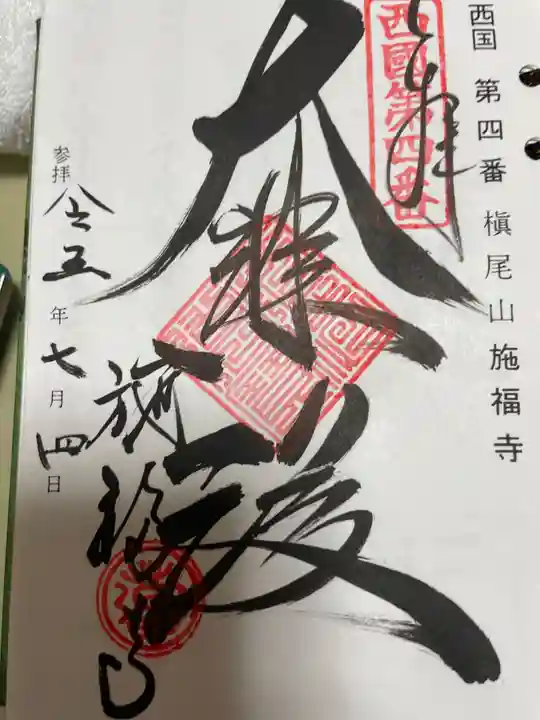 西国 第四番 槇尾山施福寺
奉拝
西國第四番
大悲殿
施福寺
参拝 令和五年七月四日